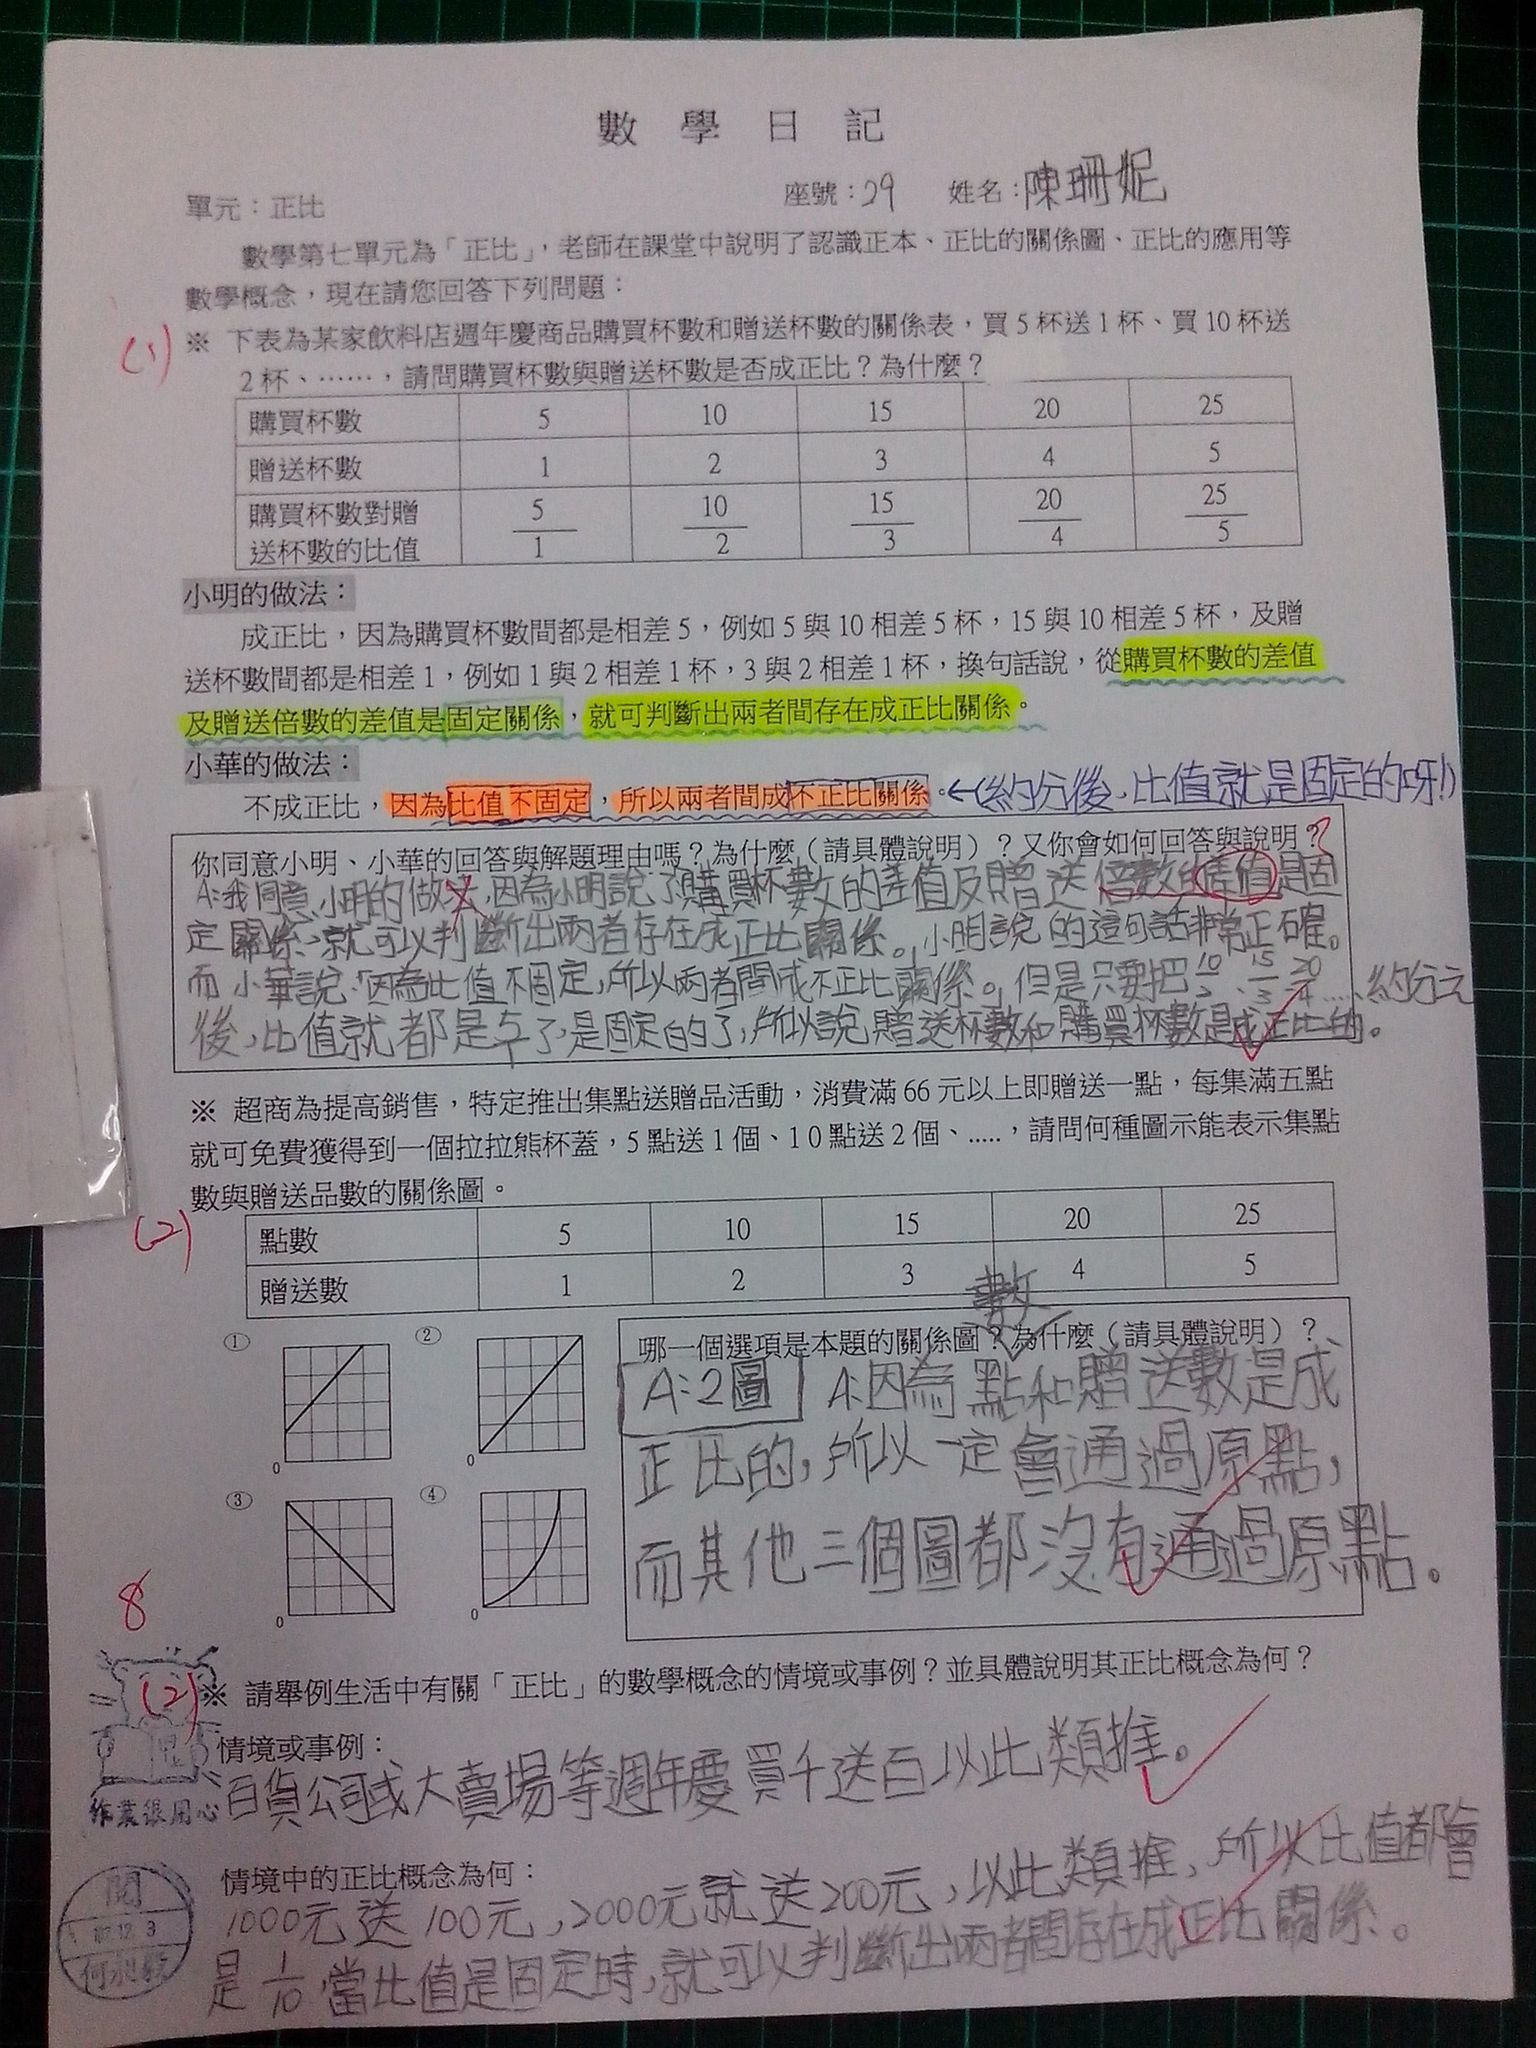 數學日記
單元：正比 座號：29 姓名：陳珊妮
數學第七單元為「正比」，老師在課堂中說明了認識正本、正比的關係圖、正比的應用等
數學概念，現在請您回答下列問題：
(1) ※ 下表為某家飲料店週年慶商品購買杯數和贈送杯數的關係表，買 5 杯送 1 杯、買 10 杯送
2 杯、……，請問購買杯數與贈送杯數是否成正比？為什麼？
購買杯數 5 10 15 20 25
贈送杯數 1 2 3 4 5
購買杯數對贈送杯數的比值 5/1 10/2 15/3 20/4 25/5
小明的做法：
成正比，因為購買杯數間都是相差 5，例如 5 與 10 相差 5 杯，15 與 10 相差 5 杯，及贈
送杯數間都是相差 1，例如 1 與 2 相差 1 杯，3 與 2 相差 1 杯，換句話說，從購買杯數的差值
及贈送倍數的差值是固定關係，就可判斷出兩者間存在成正比關係。
小華的做法：
不成正比，因為比值不固定，所以兩者間成不正比關係。←(約分後，比值就是固定的呀!)
你同意小明、小華的回答與解題理由嗎？為什麼（請具體說明）？又你會如何回答與說明？
A:我同意小明的做法,因為小明說了購買杯數的差值及贈送倍數的差值是固
定關係、就可以判斷出兩者存在成正比關係。小明說的這句話非常正確。
而小華說:「因為比值不固定,所以兩者間成不正比關係。但是只要把10/2、15/3、20/4……約分完
後,比值就都是5/1了,是固定的了,所以說,贈送杯數和購買杯數是成正比的。
※ 超商為提高銷售，特定推出集點送贈品活動，消費滿 66 元以上即贈送一點，每集滿五點
就可免費獲得到一個拉拉熊杯蓋，5 點送 1 個、10 點送 2 個、.....，請問何種圖示能表示集點
數與贈送品數的關係圖。
(2)
點數 5 10 15 20 25
贈送數 1 2 3 4 5
① ②
0 0
③ ④
0 0
哪一個選項是本題的關係圖？為什麼（請具體說明）？
A:2圖 A:因為點數和贈送數是成
正比的,所以一定會通過原點,
而其他三個圖都沒有通過原點。
8
(2) ※ 請舉例生活中有關「正比」的數學概念的情境或事例？並具體說明其正比概念為何？
情境或事例：
百貨公司或大賣場等週年慶買千送百以此類推。
作業很用心
情境中的正比概念為何：
1000元送100元,2000元就送200元,以此類推,所以比值都會
是1/10,當比值是固定時,就可以判斷出兩者間存在成正比關係。
閱